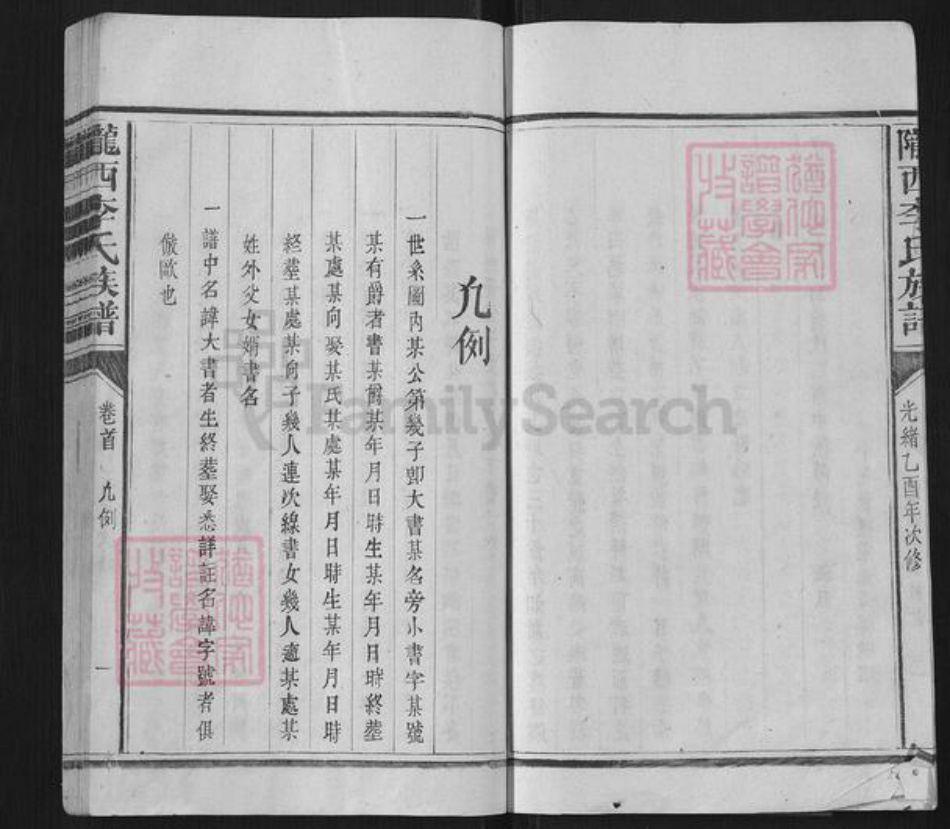 光緒乙酉年次修
凡例
一世系圖內某公第幾子即大書某名旁小書字某號
某有爵者書某爵某年月日時生某年月日時終塟
某處某向娶某氏某處某年月日時生某年月日時
終塟某處某向子幾人連次線書女幾人適某處某
姓外父女婿書名
一譜中名諱大書者生終塟娶悉詳註名諱字號者俱
倣歐也
隴西李氏族譜
卷首
凡例
一
FamilySearch
譜學會
收藏